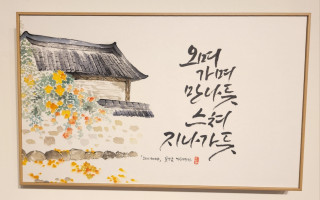 오며
가며
만나듯
스쳐
지나가듯